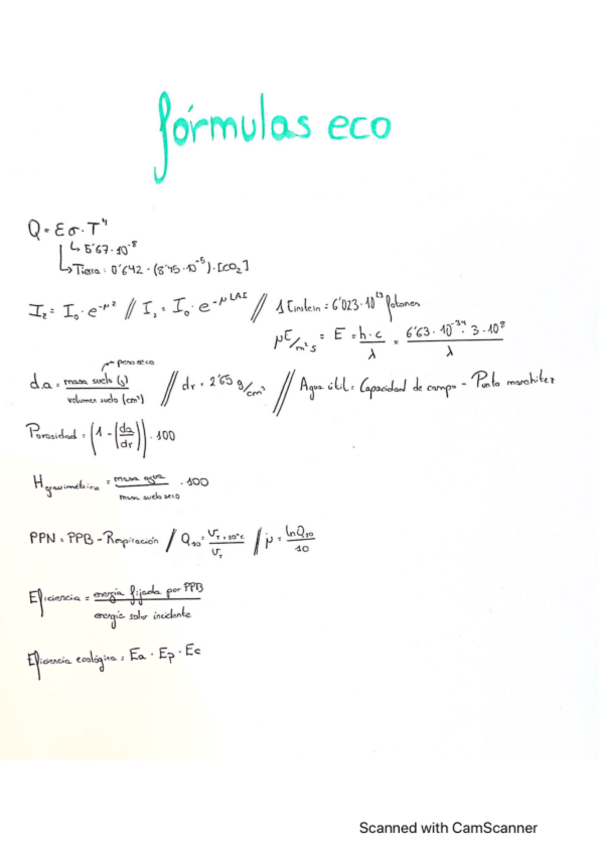 fórmulas eco
Q = ε σ · T⁴
↳ 5'67 · 10⁻⁸
↳ Tierra: 0'642 - (8'45 · 10⁻⁵) · [CO₂]
I₂ = I₀ · e^-μz // I₂ = I₀ · e^-μLAI // 1 Einstein = 6'023 · 10²³ fotones
μE/m² s = E = h · c / λ = 6'63 · 10⁻³⁴ · 3 · 10⁸ / λ
→ peso seco
d.a = masa suelo (g) / volumen suelo (cm³) // dr = 2'65 g/cm³ // Agua útil = Capacidad de campo - Punto marchitez
Porosidad = (1 - (da/dr)) · 100
H gravimétrica = masa agua / masa suelo seco · 100
PPN = PPB - Respiración / Q₁₀ = V T+10°C / V T / μ = lnQ₁₀ / 10
Eficiencia = energía fijada por PPB / energía solar incidente
Eficiencia ecológica = Ea · Ep · Ec
Scanned with CamScanner